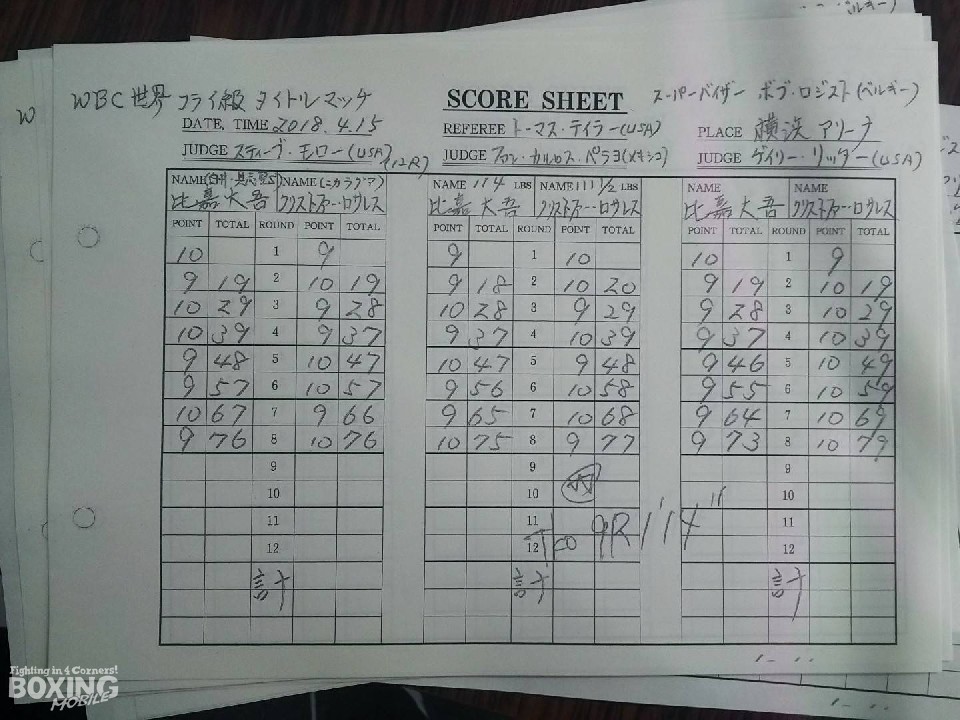 WBC世界フライ級タイトルマッチ SCORE SHEET スーパーバイザー ボブ・ロジスト(ベルギー)
DATE, TIME 2018.4.15 REFEREE トーマス・テイラー(USA) PLACE 横浜アリーナ
JUDGE スティーブ・モロー(USA) (12R) JUDGE ファン・カルロス・ペラヨ(メキシコ) JUDGE ゲイリー・リッター(USA)
NAME NAME(ニカラグア) NAME 114 LBS NAME 111 1/2 LBS NAME NAME
比嘉大吾 クリストファー・ロサレス 比嘉大吾 クリストファー・ロサレス 比嘉大吾 クリストファー・ロサレス
POINT TOTAL ROUND POINT TOTAL POINT TOTAL ROUND POINT TOTAL POINT TOTAL ROUND POINT TOTAL
10 1 9 9 1 10 10 1 9
9 19 2 10 19 9 18 2 10 20 9 19 2 10 19
10 29 3 9 28 10 28 3 9 29 9 28 3 10 29
10 39 4 9 37 9 37 4 10 39 9 37 4 10 39
9 48 5 10 47 10 47 5 9 48 9 46 5 10 49
9 57 6 10 57 9 56 6 10 58 9 55 6 10 59
10 67 7 9 66 9 65 7 10 68 9 64 7 10 69
9 76 8 10 76 10 75 8 9 77 9 73 8 10 79
9 9 9
10 10 10
11 11 11
12 12 TKO 9R 1'14" 12
計 計 計
Fighting in 4 Corners!
BOXING
MOBILE